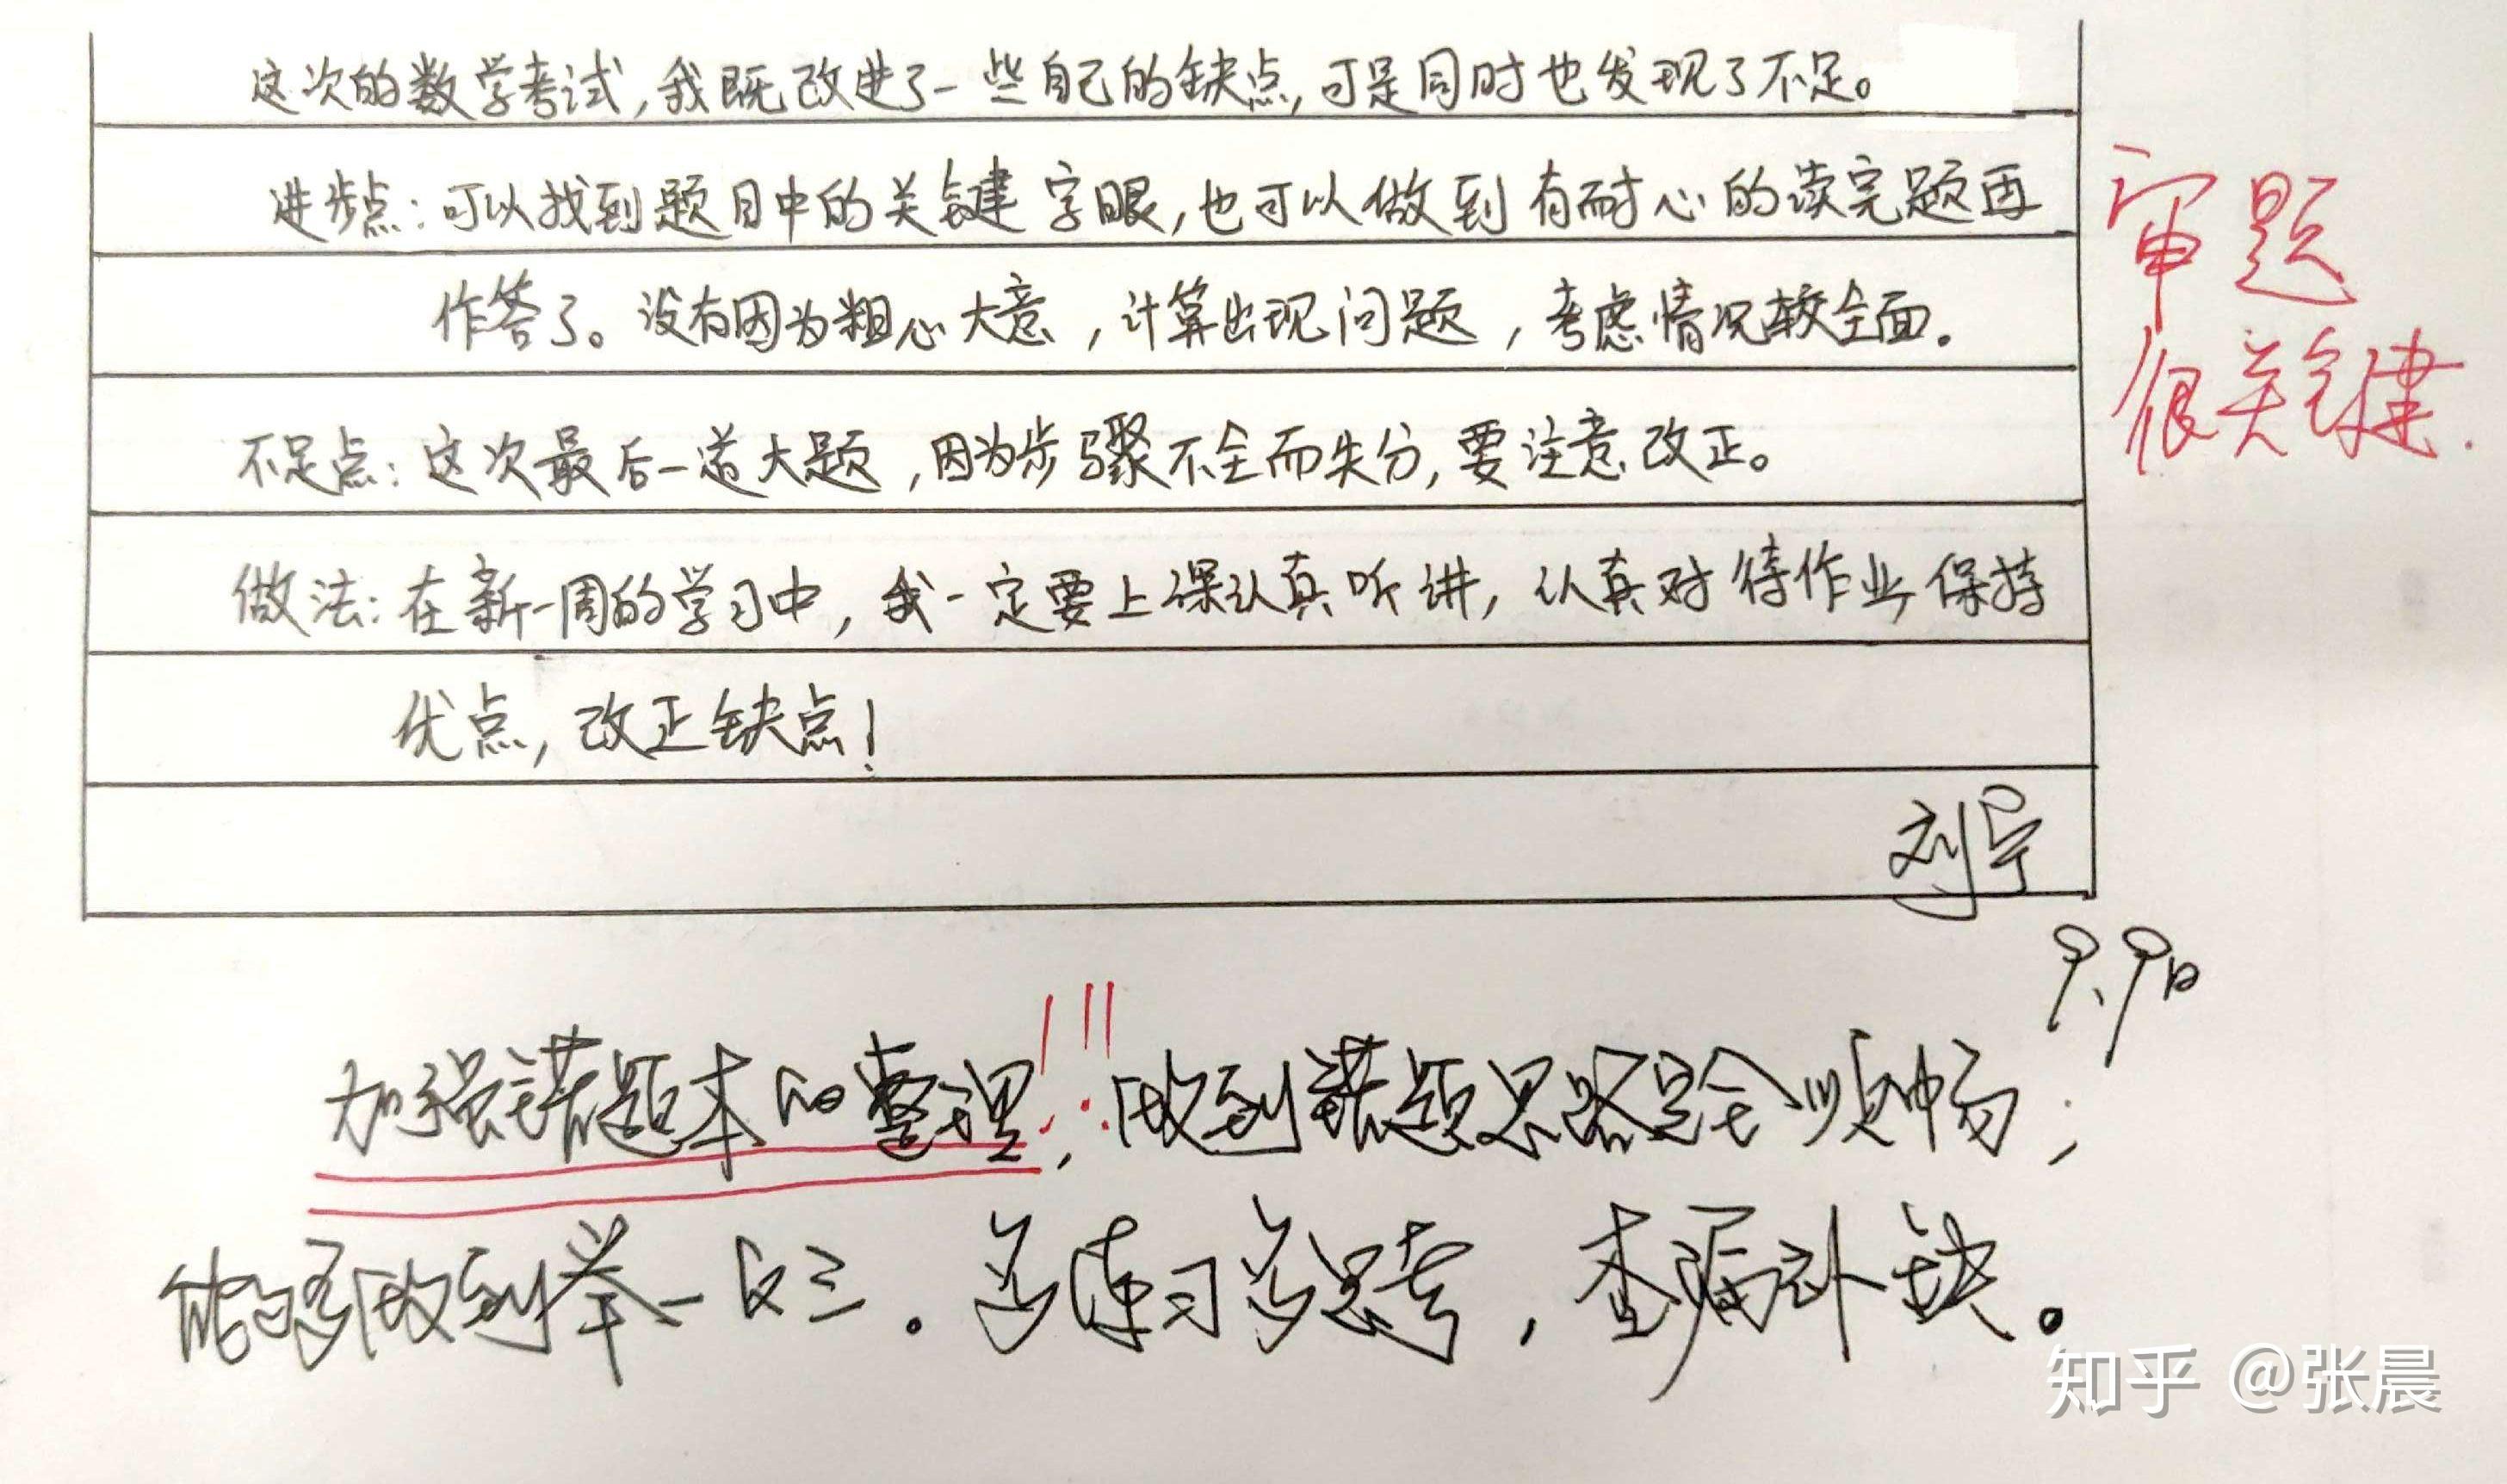 这次的数学考试,我既改进了一些自己的缺点,可是同时也发现了不足。
进步点:可以找到题目中的关键字眼,也可以做到有耐心的读完题再
作答了。没有因为粗心大意,计算出现问题,考虑情况较全面。
不足点:这次最后一道大题,因为步骤不全而失分,要注意改正。
做法:在新一周的学习中,我一定要上课认真听讲,认真对待作业保持
优点,改正缺点!
审题
很关键.
刘宁
9.9日
加强错题本的整理!!!,做到错题思路完全顺畅;
能够做到举一反三。多练习多思考,查漏补缺。
知乎 @张晨